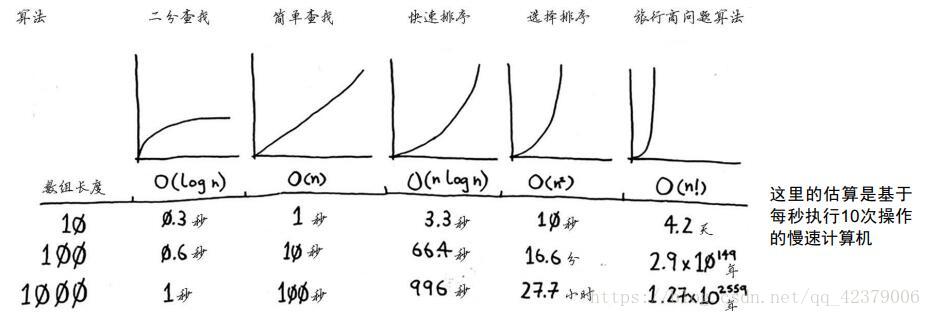 算法 二分查找 简单查找 快速排序 选择排序 旅行商问题算法
数组长度 O(log n) O(n) O(n log n) O(n²) O(n!)
10 0.3秒 1秒 3.3秒 10秒 4.2天
100 0.6秒 10秒 66.4秒 16.6分 2.9×10¹⁴⁹年
1000 1秒 100秒 996秒 27.7小时 1.27×10²⁵⁵⁹年
这里的估算是基于
每秒执行10次操作
的慢速计算机